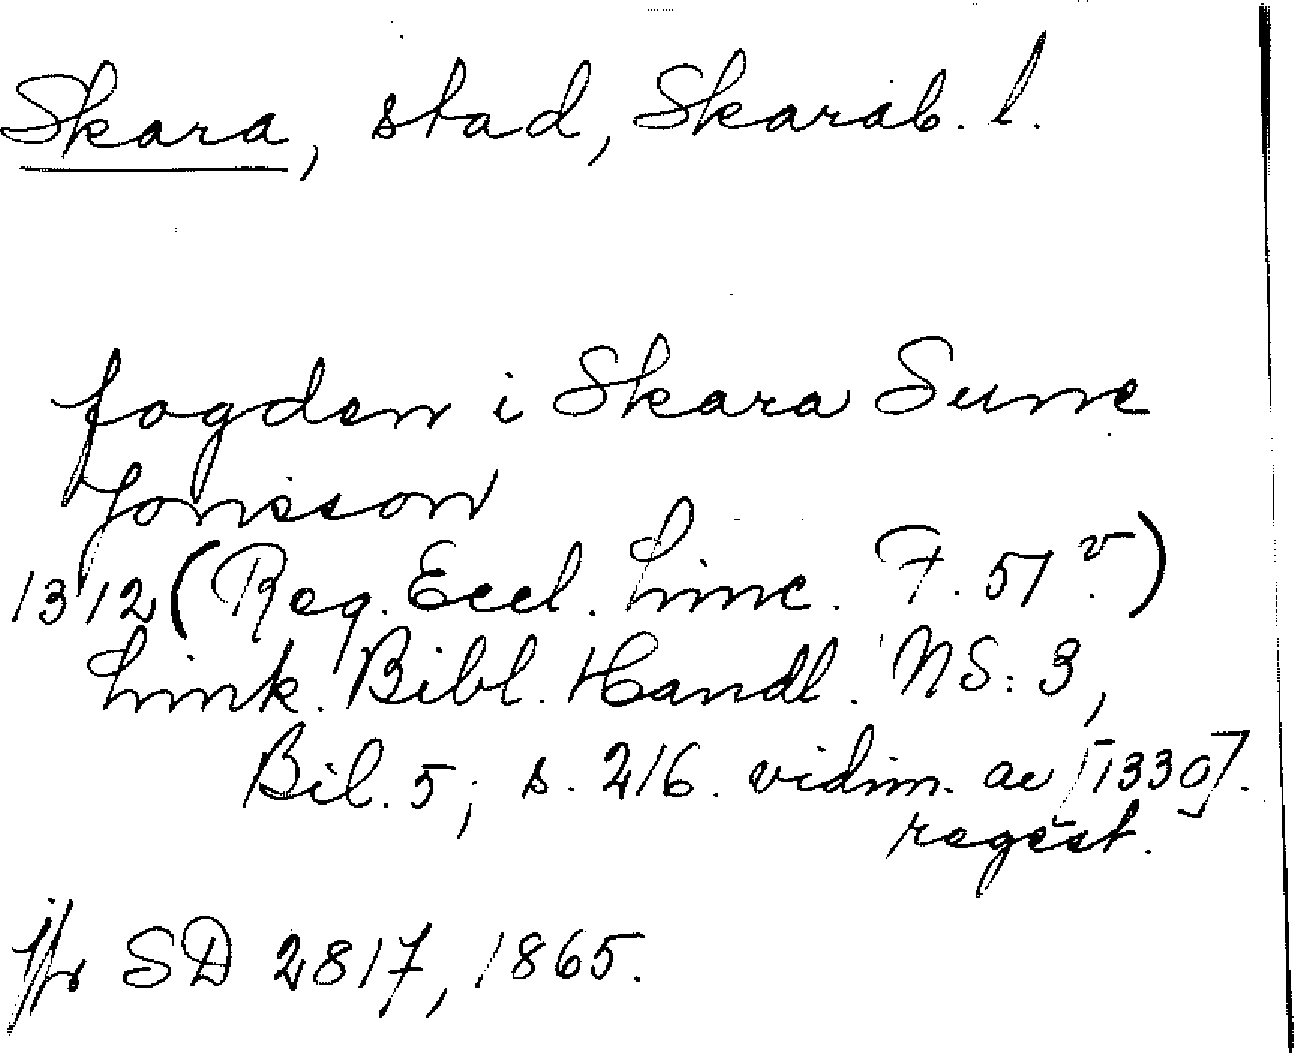 Skara, stad, Skarab. l.
fogden i Skara Sune
Jonsson
1312 (Reg. Eccl. Linc. F. 51 v)
Link. Bibl. Handl. NS: 3,
Bil. 5; s. 216. vidim. av [1330].
regest.
jfr SD 2817, 1865.